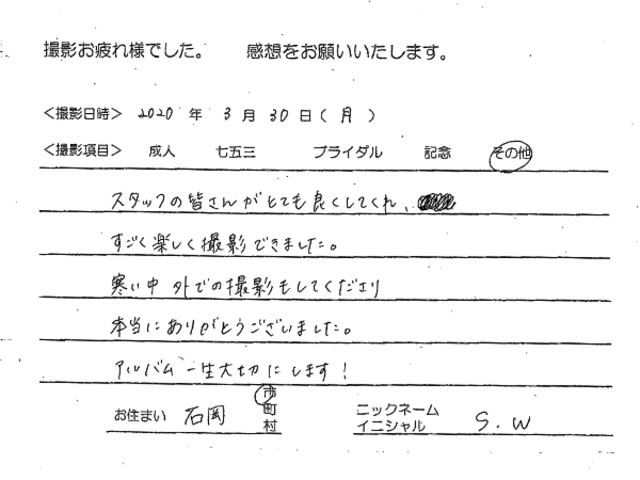 撮影お疲れ様でした。　感想をお願いいたします。
<撮影日時> 2020 年 3 月 30 日 ( 月 )
<撮影項目> 成人 七五三 ブライダル 記念 その他
スタッフの皆さんがとても良くしてくれ、
すごく楽しく撮影できました。
寒い中 外での撮影もしてくださり
本当にありがとうございました。
アルバム一生大切にします!
お住まい 石岡 市 町 村
ニックネーム
イニシャル S.W